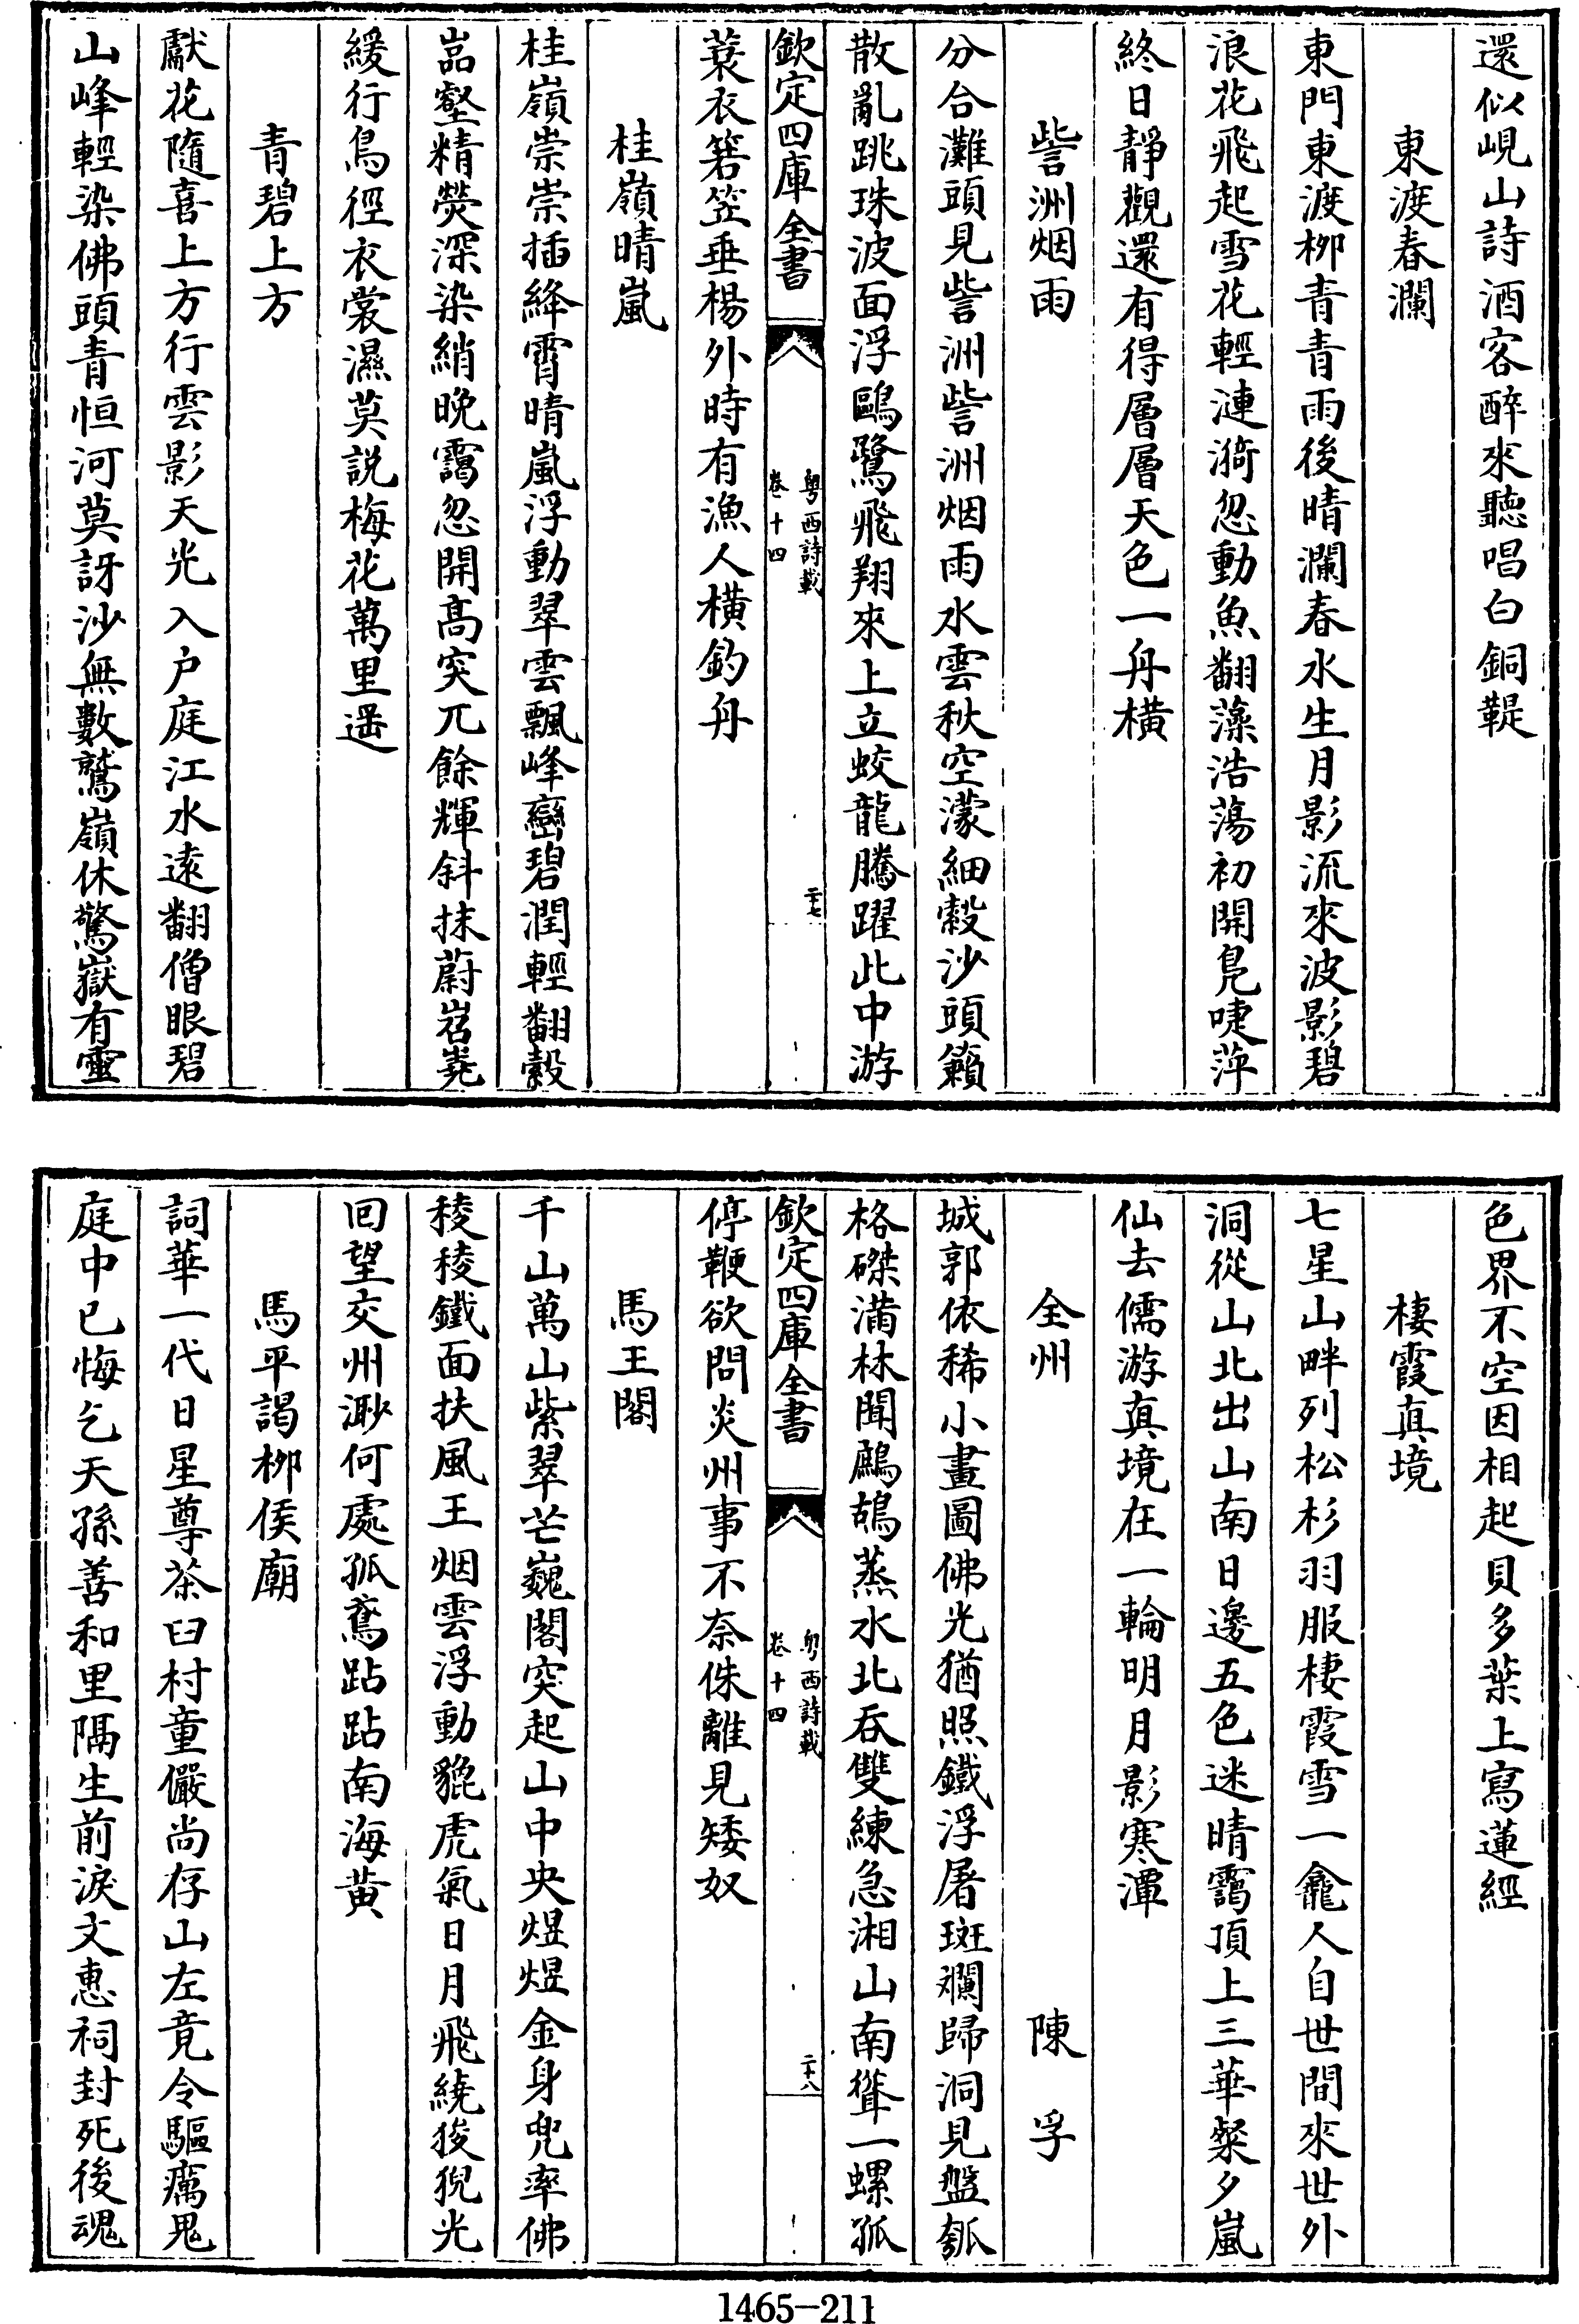 還似峴山詩酒客醉來聽唱白銅鞮
東渡春瀾
東門東渡栁青青雨後晴瀾春水生月影流來波影碧
浪花飛起雪花輕漣漪忽動魚翻藻浩蕩初開鳬唼萍
終日靜觀還有得層層天色一舟橫
訾洲烟雨
分合灘頭見訾洲訾洲烟雨水雲秋空濛細縠沙頭籟
散亂跳珠波面浮鷗鷺飛翔來上立蛟龍騰躍此中游
欽定四庫全書
粤西詩載
卷十四
二十七
蓑衣箬笠垂楊外時有漁人橫釣舟
桂嶺晴嵐
桂嶺崇崇插絳霄晴嵐浮動翠雲飄峰巒碧潤輕翻縠
嵓壑精熒深染綃晚靄忽開髙突兀餘輝斜抹蔚岧嶤
緩行鳥徑衣裳濕莫説梅花萬里遥
青碧上方
獻花隨喜上方行雲影天光入户庭江水逺翻僧眼碧
山峰輕染佛頭青恒河莫訝沙無數鷲嶺休驚嶽有靈
色界不空因相起貝多葉上寫蓮經
棲霞真境
七星山畔列松杉羽服棲霞雪一龕人自世間來世外
洞從山北出山南日邊五色迷晴靄頂上三華粲夕嵐
仙去儒游真境在一輪明月影寒潭
全州
陳孚
城郭依稀小畫圖佛光猶照鐵浮屠斑斕歸洞見盤瓠
格磔滿林聞鷓鴣蒸水北吞雙練急湘山南聳一螺孤
欽定四庫全書
粤西詩載
卷十四
二十八
停鞭欲問炎州事不奈侏離見矮奴
馬王閣
千山萬山紫翠芒巍閣突起山中央煜煜金身兜率佛
稜稜鐵面扶風王烟雲浮動貔虎氣日月飛繞狻猊光
回望交州渺何處孤鳶跕跕南海黄
馬平謁栁侯廟
詞華一代日星尊茶臼村童儼尚存山左竟令驅癘鬼
庭中已悔乞天孫善和里隔生前淚文惠祠封死後魂
1465-211